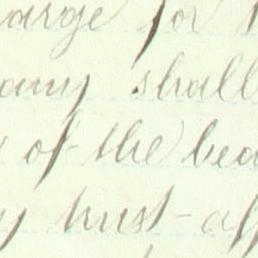 arge for
any shall
of the bea
y trust-af